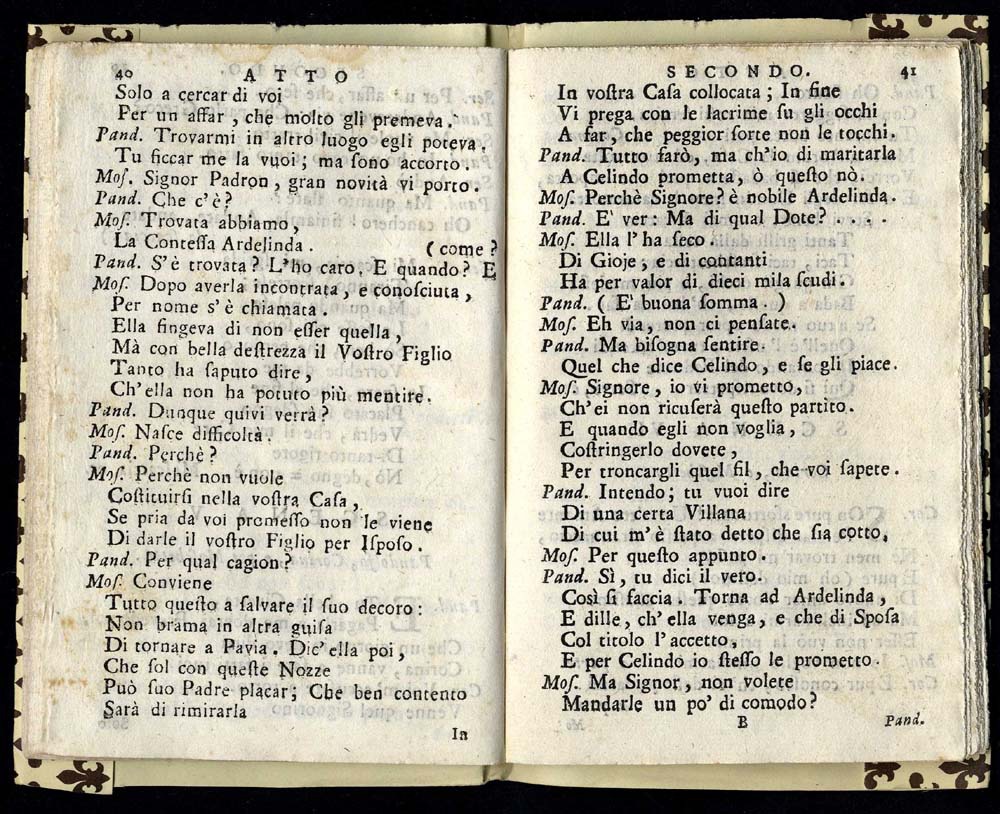 40 ATTO
Solo a cercar di voi
Per un affar, che molto gli premeva.
Pand. Trovarmi in altro luogo egli poteva.
Tu ficcar me la vuoi; ma ſono accorto.
Moſ. Signor Padron, gran novità vi porto.
Pand. Che c'è?
Moſ. Trovata abbiamo,
La Conteſſa Ardelinda. (come?
Pand. S'è trovata? L'ho caro. E quando? E
Moſ. Dopo averla incontrata, e conoſciuta,
Per nome s'è chiamata.
Ella fingeva di non eſſer quella,
Mà con bella deſtrezza il Voſtro Figlio
Tanto ha ſaputo dire,
Ch'ella non ha potuto più mentire.
Pand. Dunque quivi verrà?
Moſ. Naſce difficoltà.
Pand. Perchè?
Moſ. Perchè non vuole
Coſtituirſi nella voſtra Caſa,
Se pria da voi promeſſo non le viene
Di darle il voſtro Figlio per Iſpoſo.
Pand. Per qual cagion?
Moſ. Conviene
Tutto queſto a ſalvare il ſuo decoro:
Non brama in altra guiſa
Di tornare a Pavia. Dic'ella poi,
Che ſol con queſte Nozze
Può ſuo Padre placar; Che ben contento
Sarà di rimirarla
In
SECONDO. 41
In voſtra Caſa collocata; In fine
Vi prega con le lacrime ſu gli occhi
A far, che peggior ſorte non le tocchi.
Pand. Tutto farò, ma ch'io di maritarla
A Celindo prometta, ò queſto nò.
Moſ. Perchè Signore? è nobile Ardelinda.
Pand. E' ver: Ma di qual Dote? . . . .
Moſ. Ella l'ha ſeco.
Di Gioje, e di contanti
Ha per valor di dieci mila ſcudi.
Pand. (E' buona ſomma.)
Moſ. Eh via, non ci penſate.
Pand. Ma biſogna ſentire.
Quel che dice Celindo, e ſe gli piace.
Moſ. Signore, io vi prometto,
Ch'ei non ricuſerà queſto partito.
E quando egli non voglia,
Coſtringerlo dovete,
Per troncargli quel fil, che voi ſapete.
Pand. Intendo; tu vuoi dire
Di una certa Villana
Di cui m'è ſtato detto che ſia cotto.
Moſ. Per queſto appunto.
Pand. Sì, tu dici il vero.
Così ſi faccia. Torna ad Ardelinda,
E dille, ch'ella venga, e che di Spoſa
Col titolo l'accetto,
E per Celindo io ſteſſo le prometto.
Moſ. Ma Signor, non volete
Mandarle un po' di comodo?
B Pand.